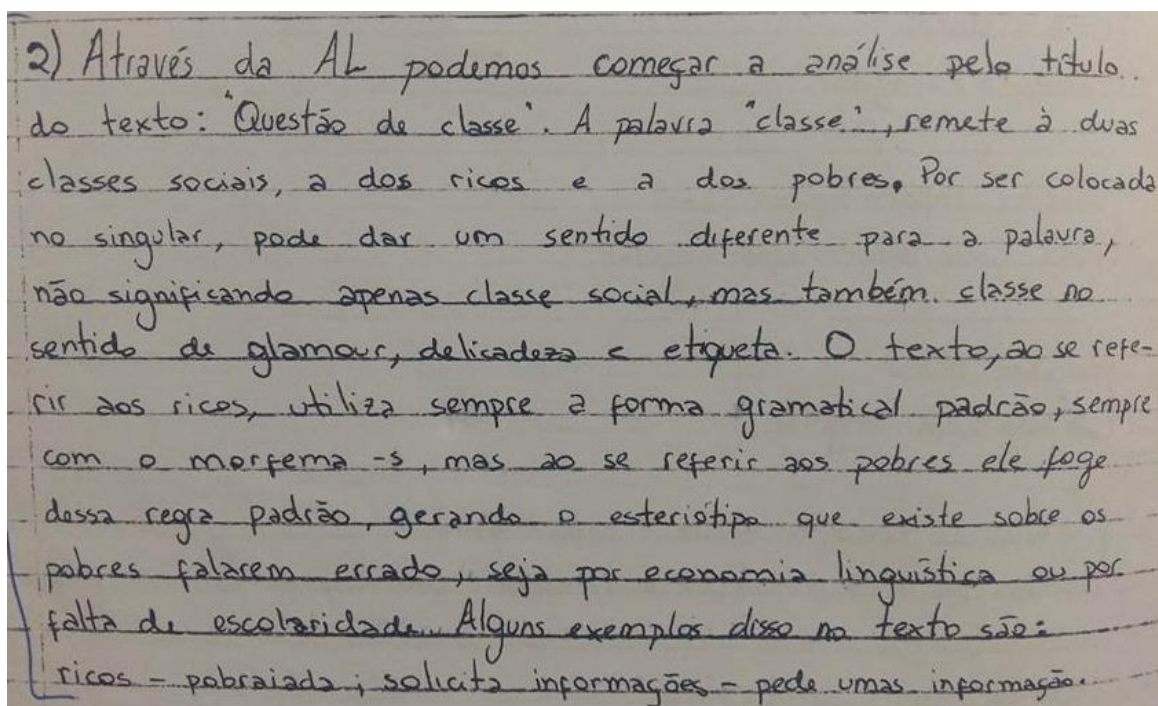 2) Através da AL podemos começar a análise pelo título
do texto: "Questão de classe". A palavra "classe", remete à duas
classes sociais, a dos ricos e a dos pobres. Por ser colocada
no singular, pode dar um sentido diferente para a palavra,
não significando apenas classe social, mas também classe no
sentido de glamour, delicadeza e etiqueta. O texto, ao se refe-
rir aos ricos, utiliza sempre a forma gramatical padrão, sempre
com o morfema -s, mas ao se referir aos pobres ele foge
dessa regra padrão, gerando o esteriótipo que existe sobre os
pobres falarem errado, seja por economia linguística ou por
falta de escolaridade. Alguns exemplos disso no texto são:
ricos - pobraiada; solicita informações - pede umas informação.